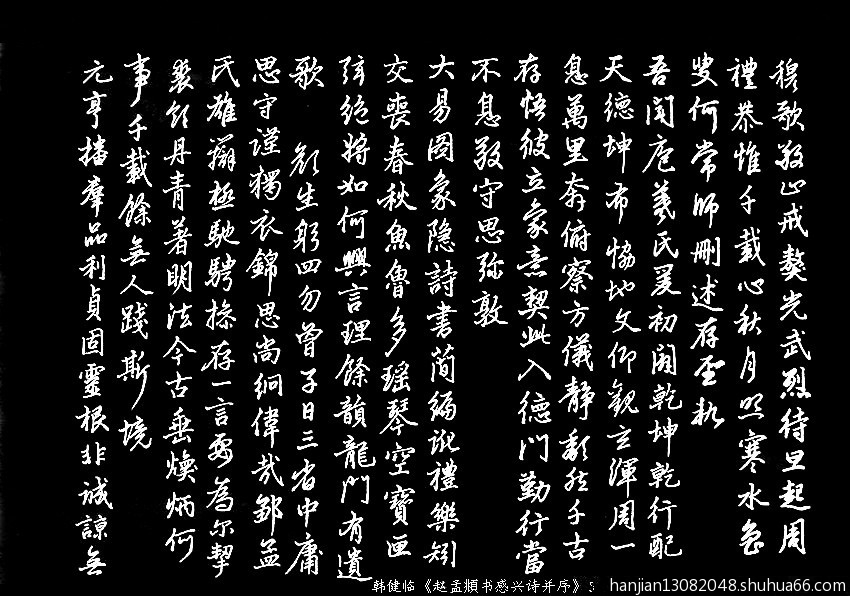 穆歌敬止戒獒光武烈待旦起周
禮恭惟千載心秋月照寒水魯
叟何常師刪述存聖軌
吾聞庖羲氏爰初闢乾坤乾行配
天德坤布協地文仰觀玄渾周一
息萬里奔俯察方儀靜頹然千古
存悟彼立象意契此入德門勤行當
不息敬守思弥敦
大易圖象隐詩書簡編訛禮樂矧
交喪春秋魚魯多瑶琴空寶匣
弦絕將如何興言理餘韻龍門有遺
歌 顏生躬四勿曾子日三省中庸
思守謹獨衣錦思尚絅偉哉鄒孟
氏雄辯極馳騁操存一言要為尔挈
裘領丹青著明法今古垂煥炳何
事千載餘無人踐斯境
元亨播羣品利貞固靈根非誠諒無
韩健临《赵孟頫书感兴诗并序》
hanjian13082048.shuhua66.com